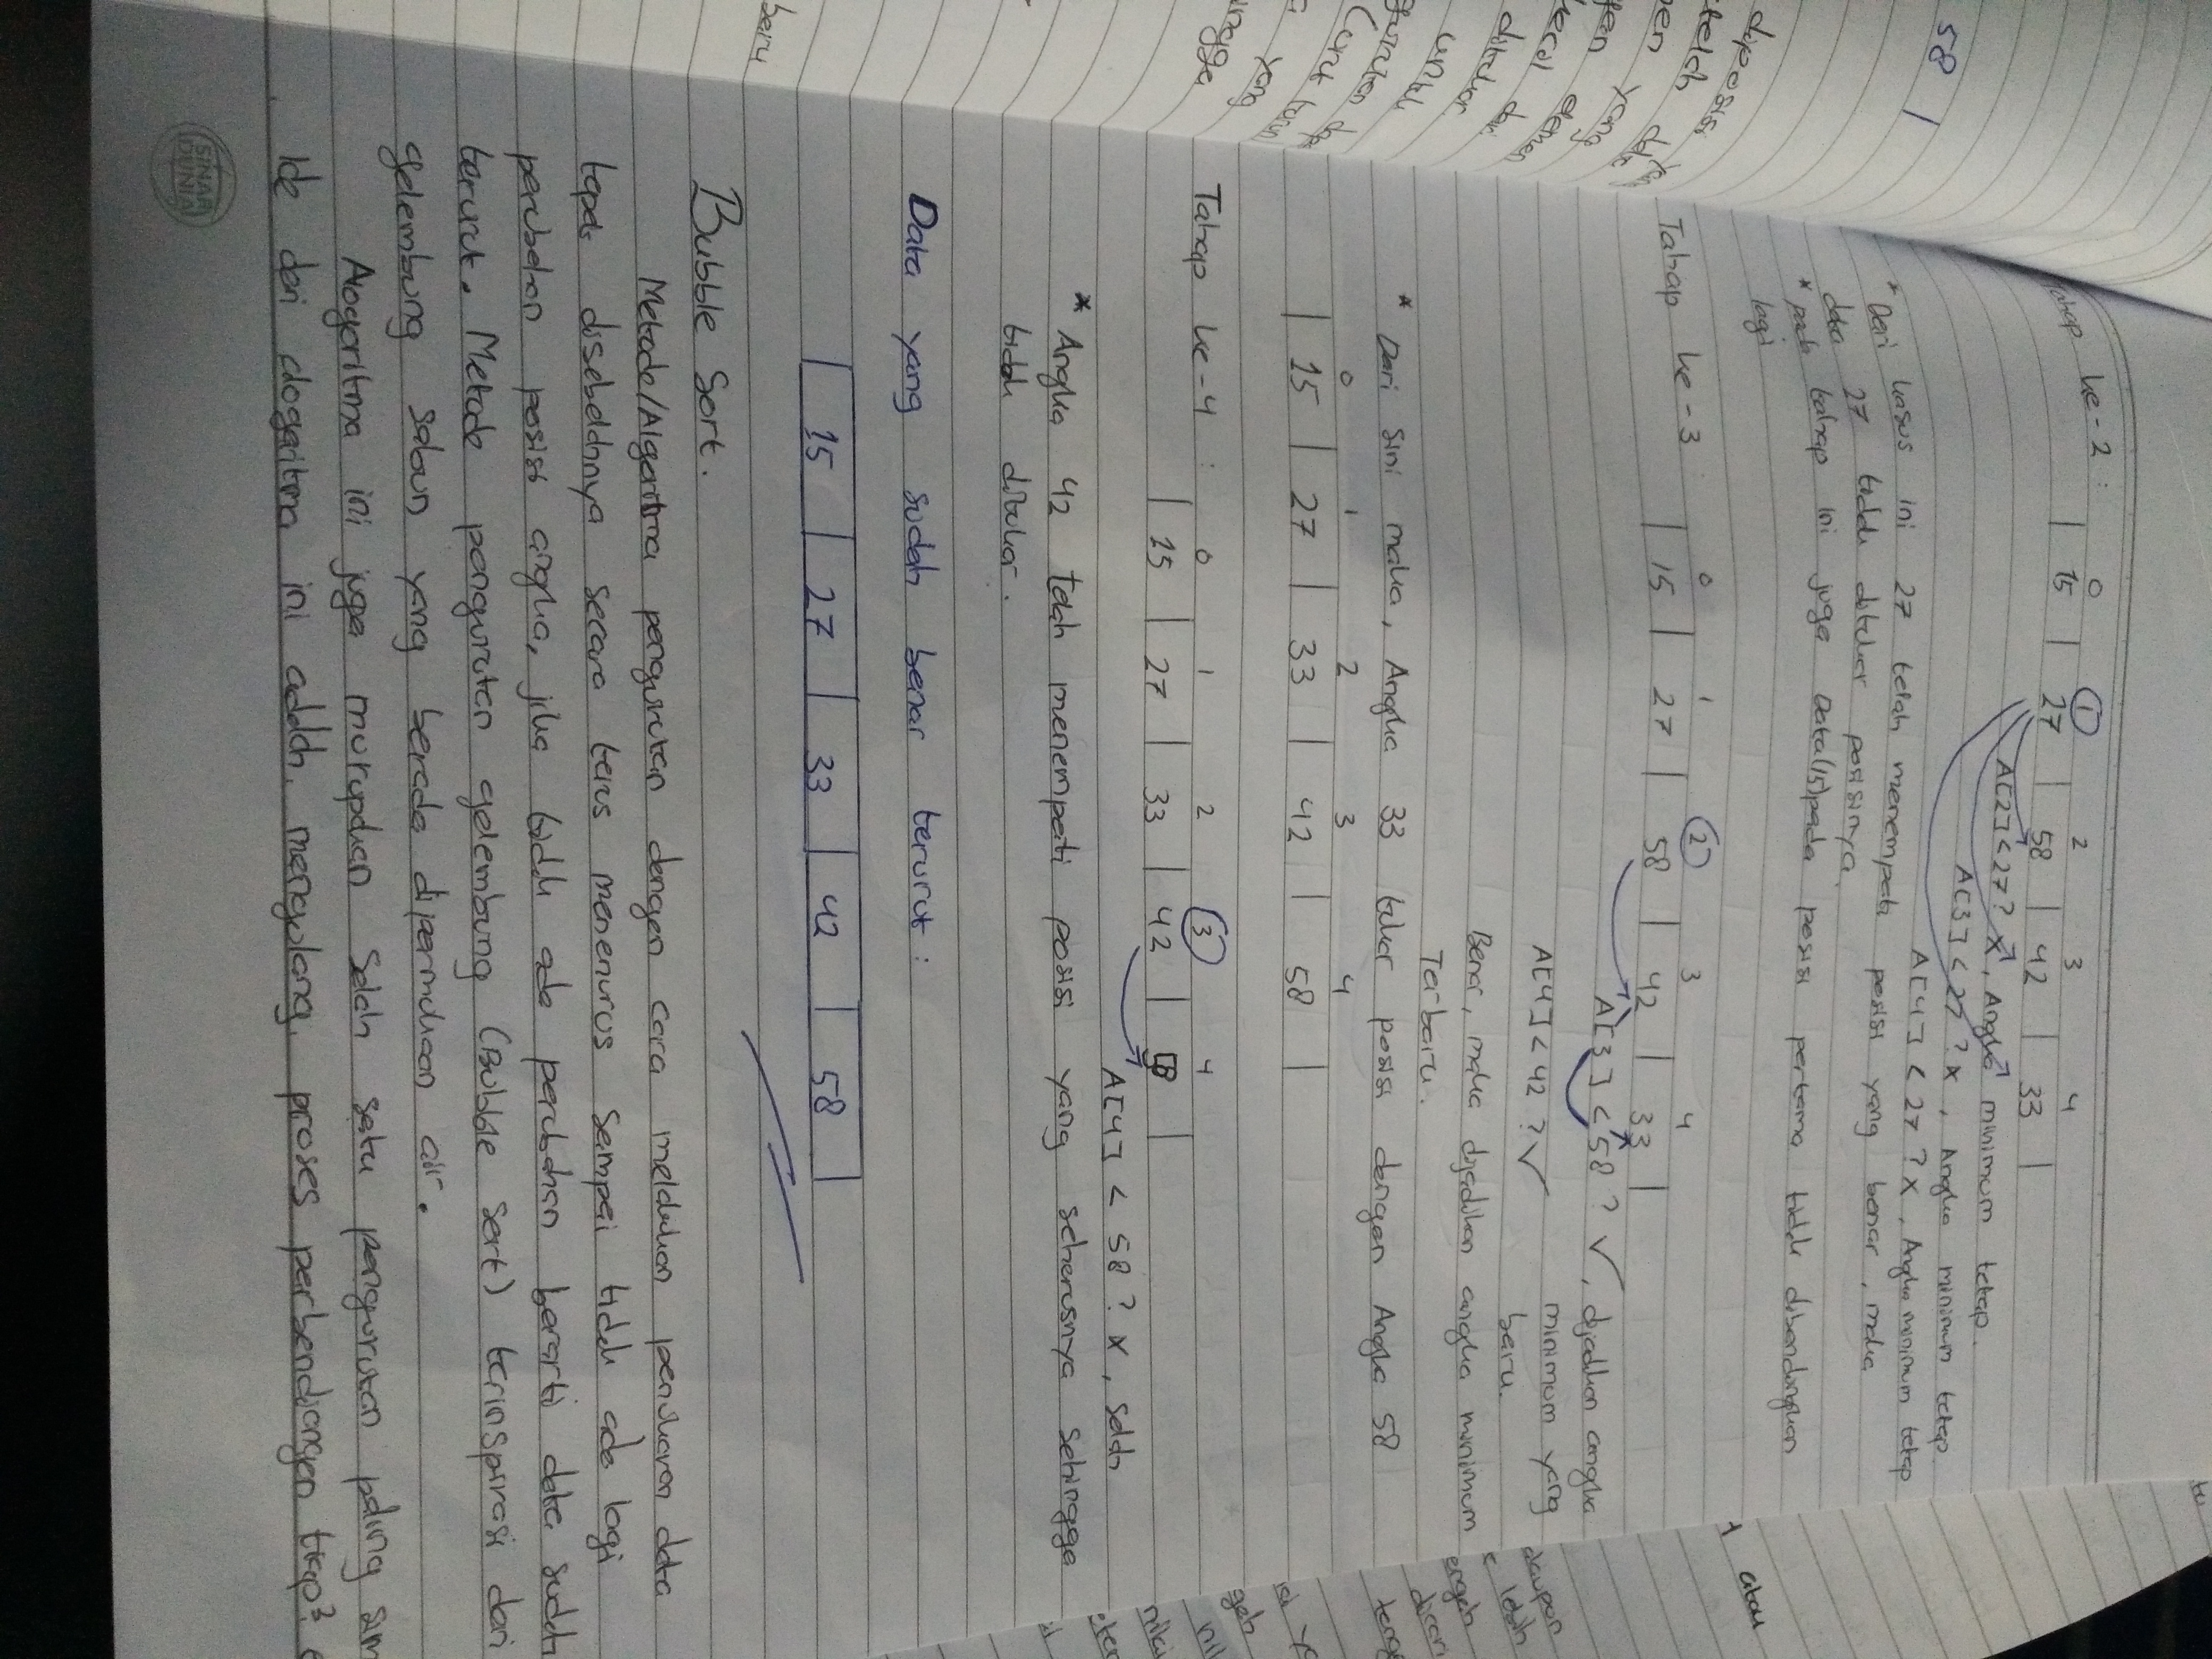 Tahap ke-2 :
0 1 2 3 4
| 15 | 27 | 58 | 42 | 33 |
A[2] < 27 ? x, Angka minimum tetap.
A[3] < 27 ? x, Angka minimum tetap
A[4] < 27 ? x, Angka minimum tetap
* Dari kasus ini 27 telah menempati posisi yang benar, maka
data 27 tidak ditukar posisinya.
* pada tahap ini juga Data(15)pada posisi pertama tidak dibandingkan
lagi
Tahap ke-3 :
0 1 2 3 4
| 15 | 27 | 58 | 42 | 33 |
A[3] < 58 ? ✓, dijadikan angka
minimum yang
baru.
A[4] < 42 ? ✓
Benar, maka dijadikan angka minimum
Terbaru.
* Dari sini maka, Angka 33 tukar posisi dengan Angka 58
0 1 2 3 4
| 15 | 27 | 33 | 42 | 58 |
Tahap ke-4 :
0 1 2 3 4
| 15 | 27 | 33 | 42 | 58 |
A[4] < 58 ? x, salah
* Angka 42 telah menempati posisi yang seharusnya sehingga
tidak ditukar.
Data yang sudah benar terurut :
| 15 | 27 | 33 | 42 | 58 |
Bubble Sort.
Metode/Algoritma pengurutan dengan cara melakukan penukaran data
tepat disebelahnya secara terus menerus sampai tidak ada lagi
perubahan posisi angka, jika tidak ada perubahan berarti data sudah
terurut. Metode pengurutan gelembung (Bubble Sort) terinspirasi dari
gelembung sabun yang berada dipermukaan air.
Alogaritma ini juga merupakan salah satu pengurutan paling sim
Ide dari alogaritma ini adalah, mengulang proses perbandingan tiap²
SINAR
DUNIA
58 |
baru
yang
untuk
atau